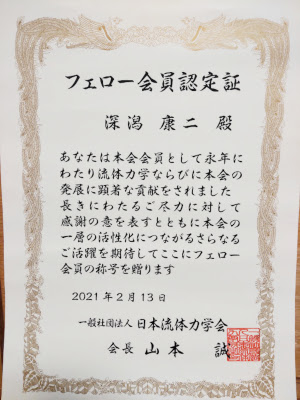 フェロー会員認定証
深潟 康二 殿
あなたは本会会員として永年に
わたり流体力学ならびに本会の
発展に顕著な貢献をされました
長きにわたるご尽力に対して
感謝の意を表すとともに本会の
一層の活性化につながるさらなる
ご活躍を期待してここにフェロー
会員の称号を贈ります
2021年2月13日
一般社団法人 日本流体力学会
会長 山本 誠